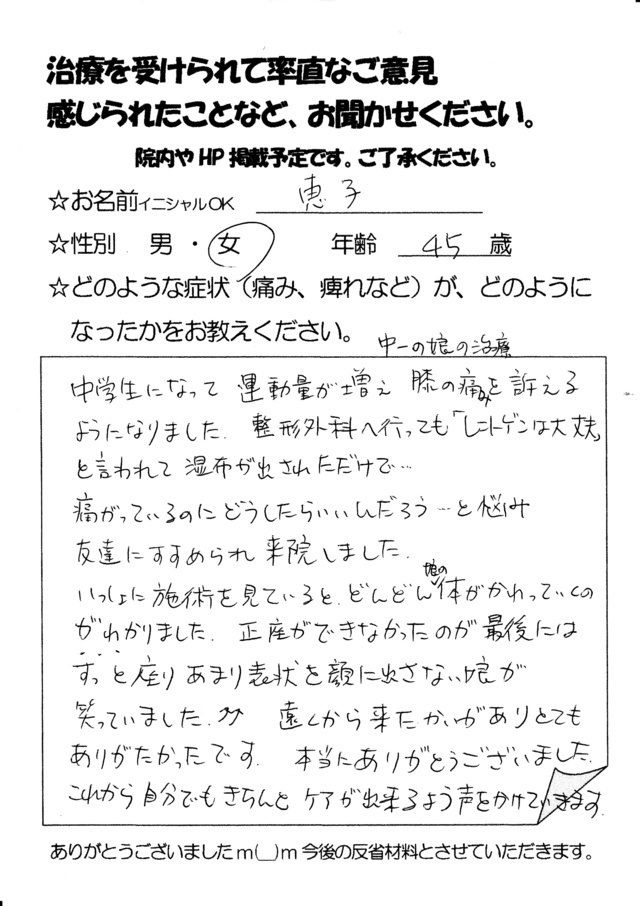 治療を受けられて率直なご意見
感じられたことなど、お聞かせください。
院内やHP掲載予定です。ご了承ください。
☆お名前イニシャルOK 恵子
☆性別 男・女 年齢 45 歳
☆どのような症状(痛み、痺れなど)が、どのように
なったかをお教えください。
中一の娘の治療
中学生になって 運動量が増え 膝の痛みを訴える
ようになりました。整形外科へ行っても「レントゲンは大丈夫」
と言われて 湿布が出されただけで…
痛がっているのにどうしたらいいんだろう…と悩み
友達にすすめられ 来院しました。
いっしょに施術を見ていると、どんどん娘の体がかわっていくの
がわかりました。正座ができなかったのが最後には
すっと座り あまり表状を顔に出さない娘が
笑っていました。 遠くから来たかいがありとても
ありがたかったです。本当にありがとうございました。
これから自分でもきちんと ケアが出来るよう声をかけていきます。
ありがとうございましたm(__)m今後の反省材料とさせていただきます。